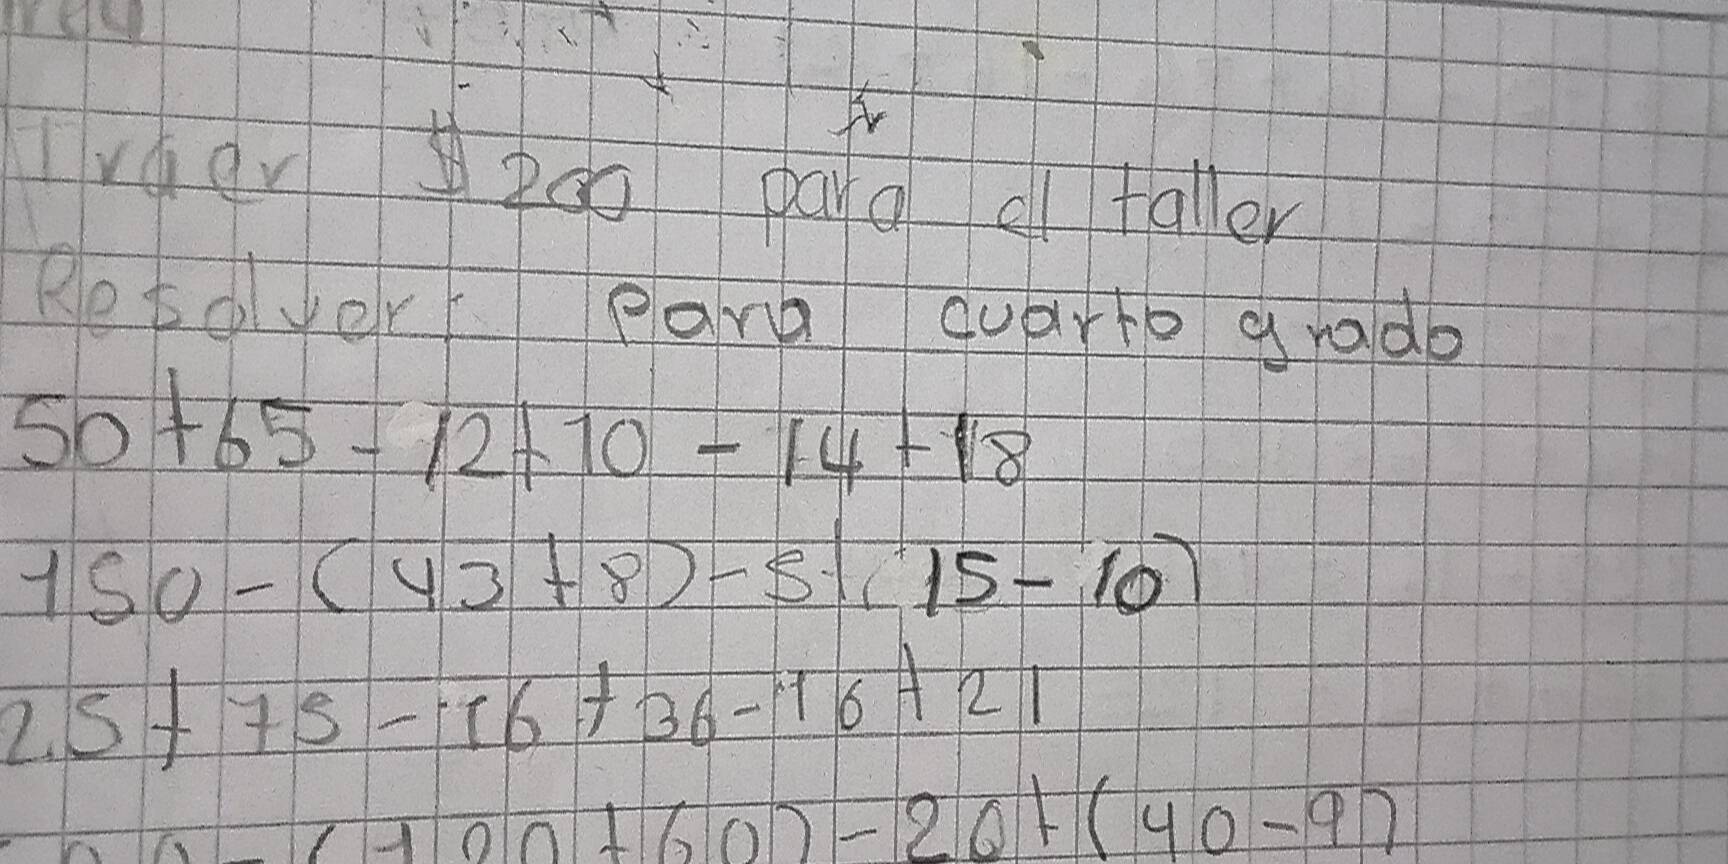 Traer $200 para el taller
Resolver: Para cuarto grado
50+65-12+10-14+18
150-(43+8)-5+(15-10)
25+75-16+36-16+21
-(100+60)-20+(40-9)